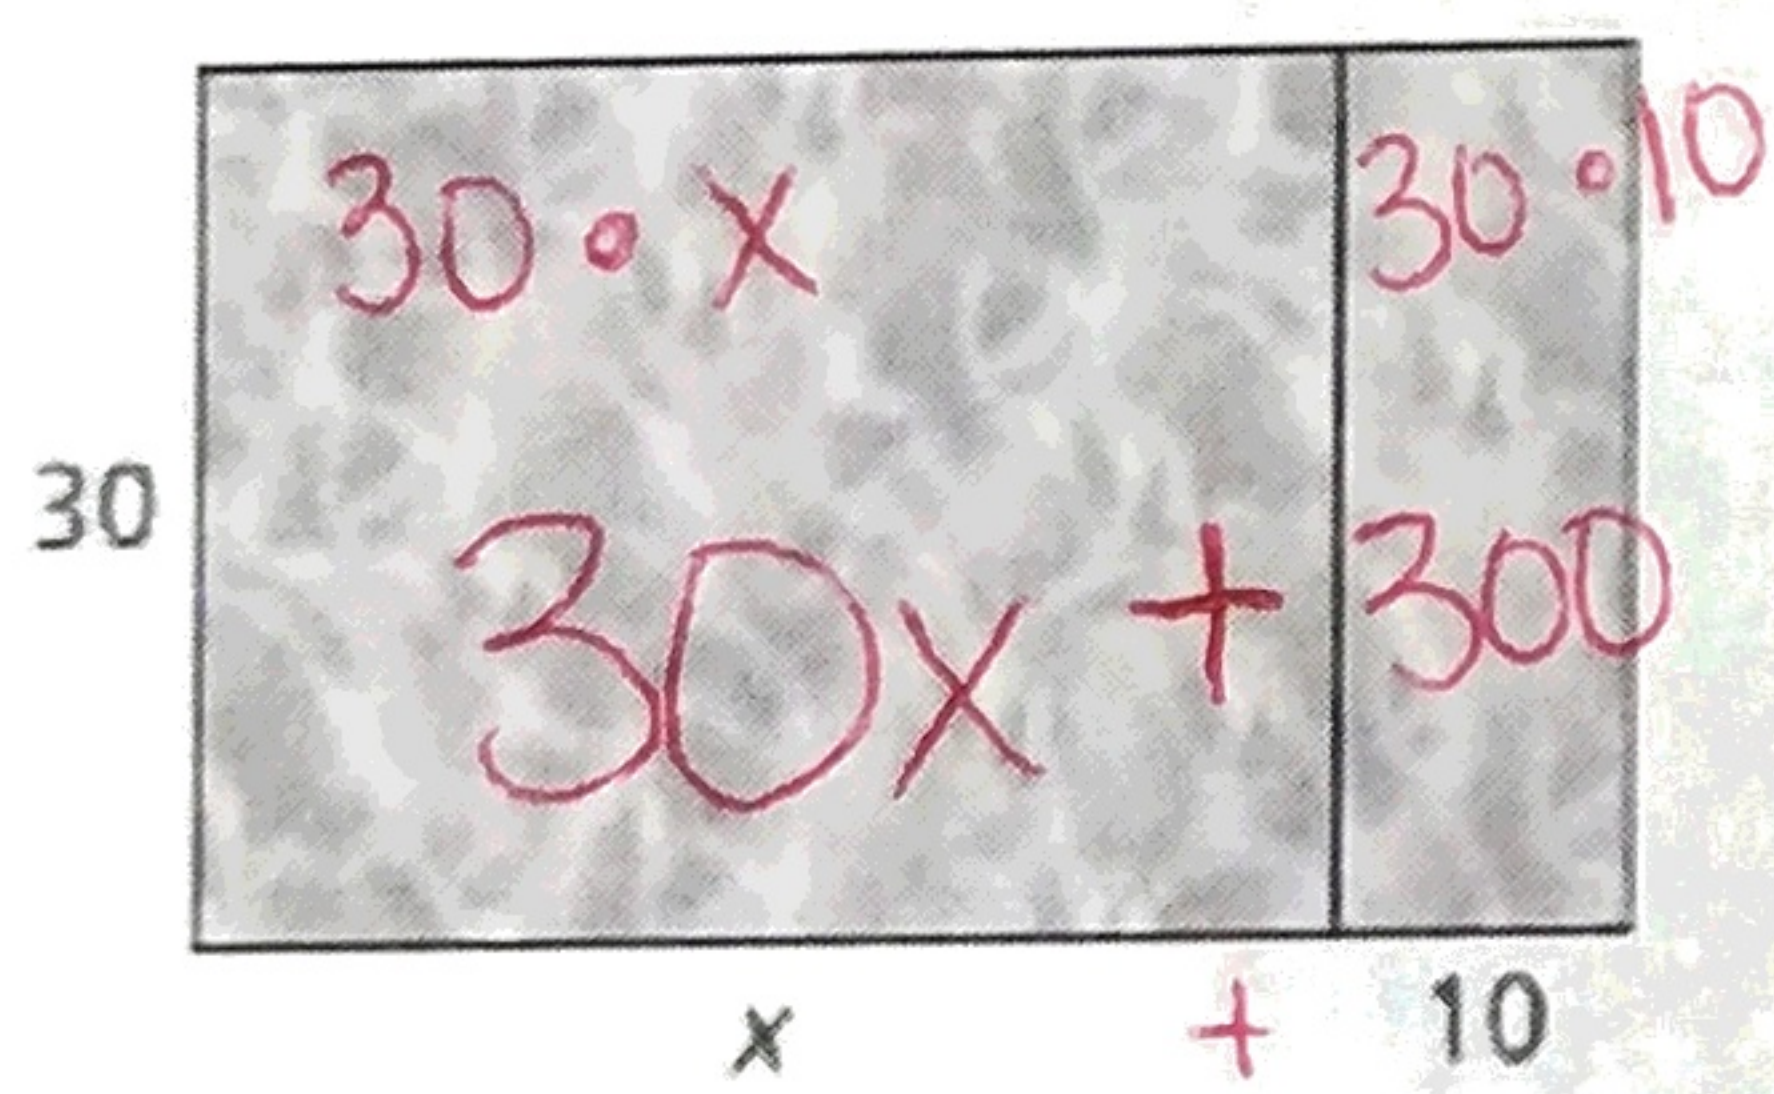 30 • x 30 • 10
30
30x + 300
x + 10